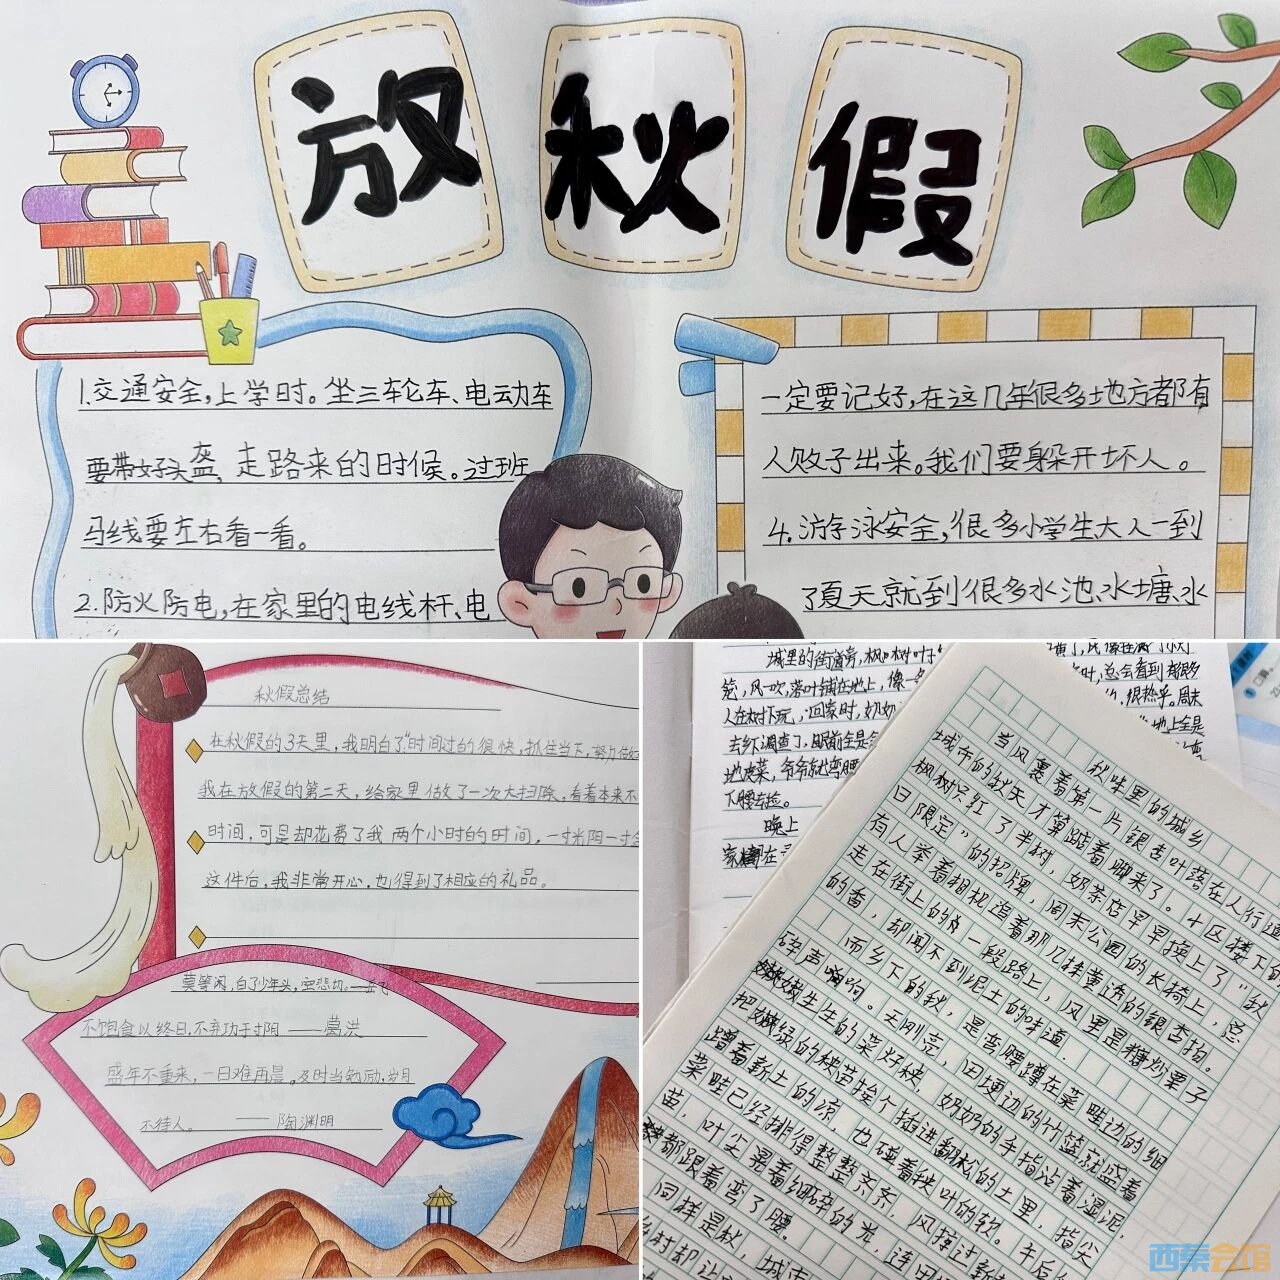 放秋假
1.交通安全,上学时。坐三轮车、电动车
要带好头盔,走路来的时候。过班
马线要左右看一看。
2.防火防电,在家里的电线杆、电
一定要记好,在这几年很多地方都有
人贩子出来。我们要躲开坏人。
4.游泳安全,很多小学生大人一到
了夏天就到很多水池、水塘、水
秋假总结
在秋假的3天里,我明白了"时间过的很快,抓住当下,努力做好
我在放假的第二天,给家里做了一次大扫除,看着本来不
时间,可是却花费了我两个小时的时间,一寸光阴一寸金
这件后,我非常开心,也得到了相应的礼品。
莫等闲,白了少年头,空悲切。
不饱食以终日,不弃功于寸阴 ——葛洪
盛年不重来,一日难再晨。及时当勉励,岁月
不待人。 —— 陶渊明
城里的街道旁,枫树叶
笼,风一吹,落叶铺在地上,像一
人在树下玩,回家时,奶奶
去乡调查了,眼前全是金
地皮菜,爷爷就弯腰
下腰去捡。
晚上
时,总会看到很多
很热乎。周末
地上全是
秋味里的城乡
当风裹着第一片银杏叶落在人行道
城市的秋天才算踮着脚来了。小区楼下的
枫树只红了半树,奶茶店早早换上了"秋
日限定"的招牌,周末公园的长椅上,总
有人举着相机追着那几株黄透的银杏拍。
走在街上的一段路上,风里是糖炒栗子
的香,却闻不到泥土的味道.
而乡下的秋,是弯腰蹲在菜畦边的细
碎声响。天刚亮,田埂边的竹篮就盛着
生生的菜籽秧,奶奶的手指沾着湿泥,
把嫩绿的秧苗挨个插进翻松的土里,指尖
蹭着新土的凉,也碰着秧叶的软。午后
菜畦已经排得整整齐齐,风掠过新
苗,叶尖晃着细碎的光,连田
都跟着弯了腰。
同样是秋,城市
乡村却让
西秦会馆